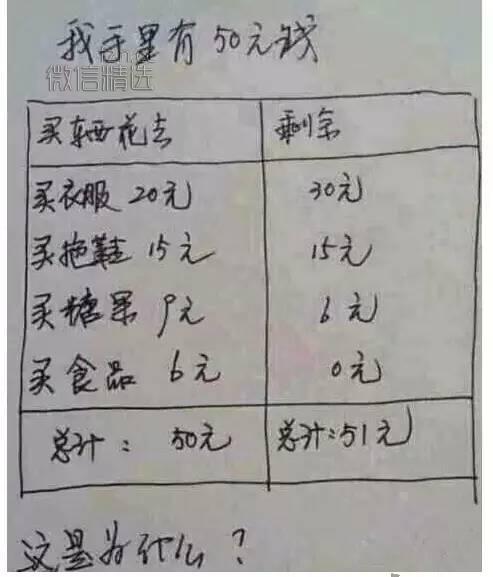 我手里有50元钱
微信精选
买东西花去 剩余
买衣服 20元 30元
买拖鞋 15元 15元
买糖果 9元 6元
买食品 6元 0元
总计: 50元 总计:51元
这是为什么?